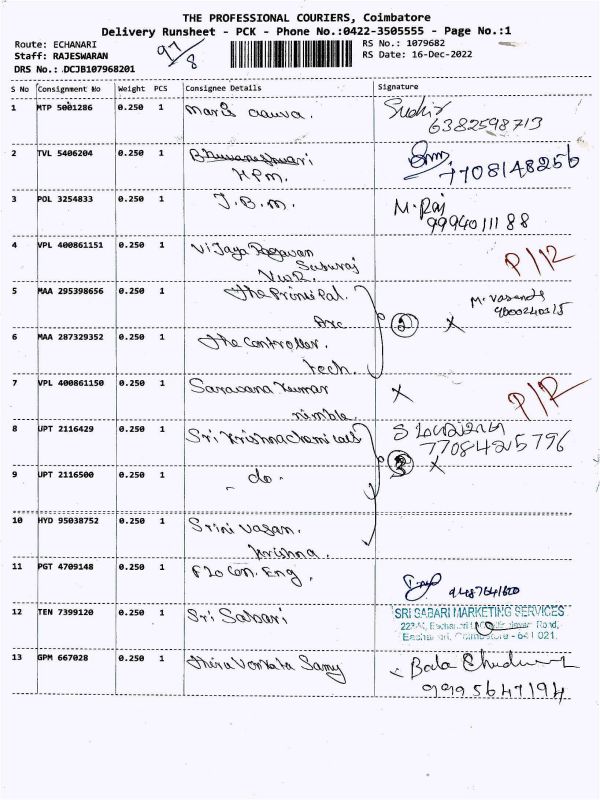 THE PROFESSIONAL COURIERS, Coimbatore
Delivery Runsheet - PCK - Phone No.:0422-3505555 - Page No.:1
Route: ECHANARI
RS No.: 1079682
Staff: RAJESWARAN
RS Date: 16-Dec-2022
DRS No.: DCJB107968201
97/8
S No Consignment No Weight PCS Consignee Details Signature
1 MTP 5001286 0.250 1
6382598713
2 TVL 5406204 0.250 1 Bhuvaneshwari
H.P.M.
7708148256
3 POL 3254833 0.250 1 J.B.M.
M. Raj
9994011188
4 VPL 400861151 0.250 1 Vijaya
P/R
5 MAA 295398656 0.250 1 The Principal.
2 X
6 MAA 287329352 0.250 1 The Controller.
Tech.
7 VPL 400861150 0.250 1 Saravana Kumar
nimble.
X P/R
8 UPT 2116429 0.250 1 Sri Krishna Chemicals
7708425796
9 UPT 2116500 0.250 1 - do -
3 X
10 HYD 95038752 0.250 1 Srinivasan.
Krishna.
11 PGT 4709148 0.250 1 Flo Con. Eng.
12 TEN 7399120 0.250 1 Sri Sabari
SRI SABARI MARKETING SERVICES
Road,
Coimbatore - 641 021.
13 GPM 667028 0.250 1
Bala
9995647194